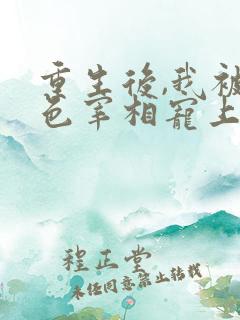 重生後,我被
色宰相寵上
程正堂
未经同意禁止转载